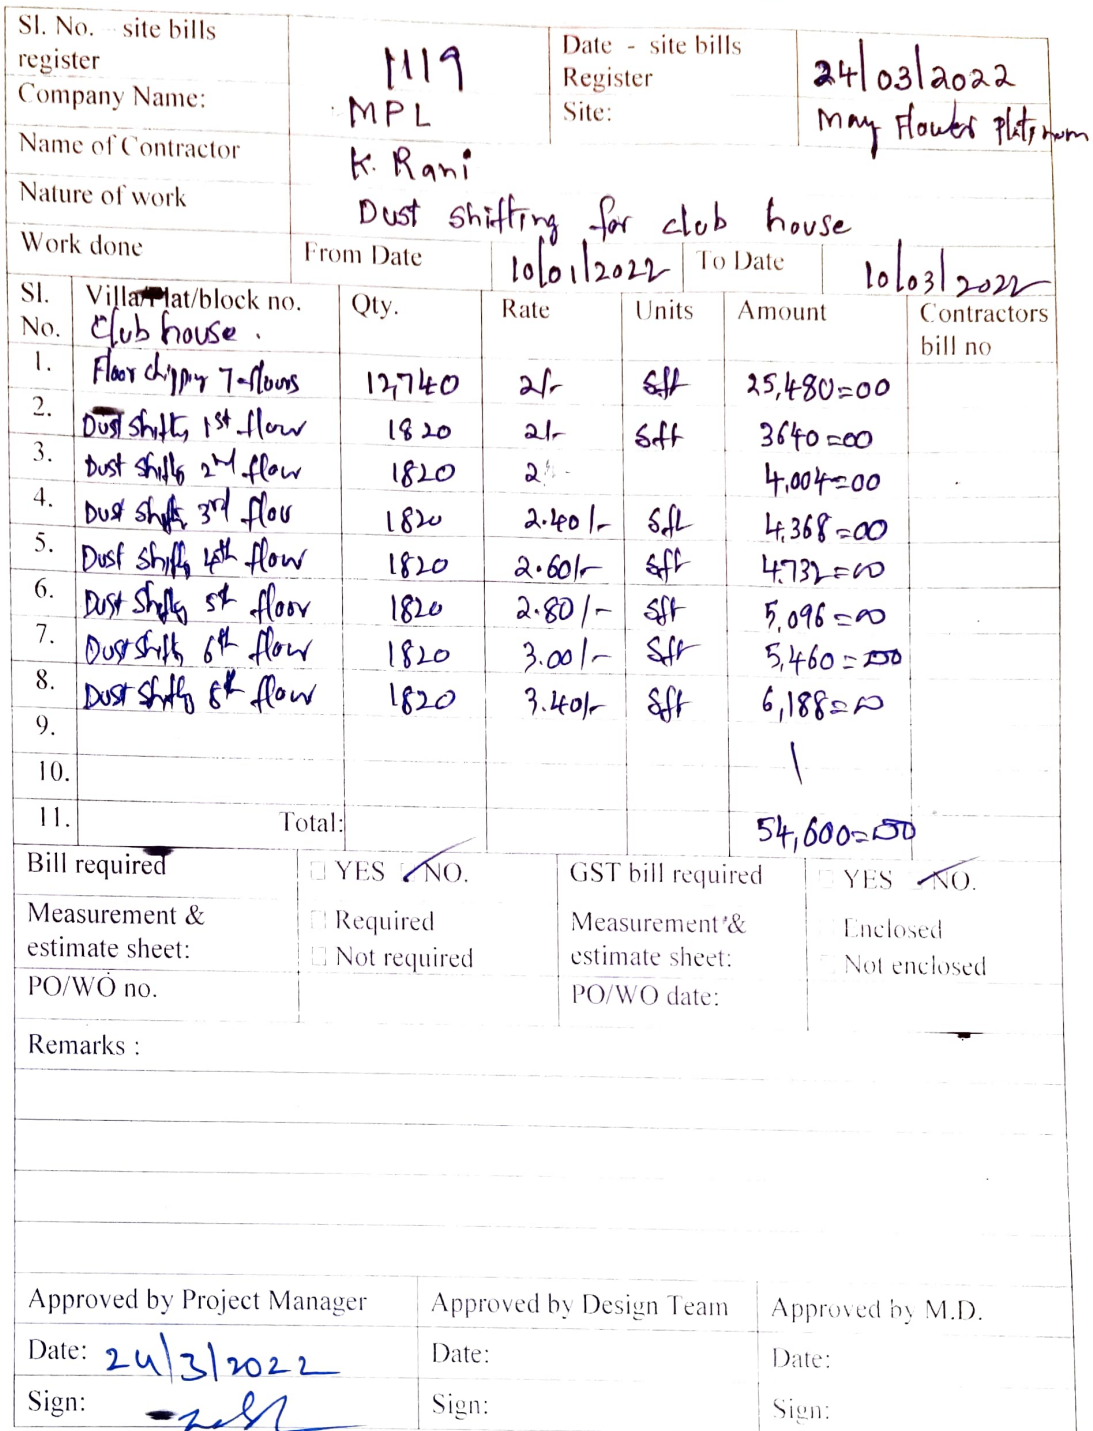 Sl. No. - site bills register 1119 Date - site bills Register 24/03/2022
Company Name: MPL Site: May Flower Platinum
Name of Contractor K. Rani
Nature of work Dust shifting for club house
Work done From Date 10/01/2022 To Date 10/03/2022
Sl. No. Villa/Flat/block no. Qty. Rate Units Amount Contractors bill no
Club house.
1. Floor chipping 7-floors 12,740 2/- Sft 25,480=00
2. Dust shifting 1st floor 1820 2/- Sft 3640=00
3. Dust shifting 2nd floor 1820 4,004=00
4. Dust shifting 3rd floor 1820 2.40/- Sft 4,368=00
5. Dust shifting 4th floor 1820 2.60/- Sft 4732=00
6. Dust shifting 5th floor 1820 2.80/- Sft 5,096=00
7. Dust shifting 6th floor 1820 3.00/- Sft 5,460=00
8. Dust shifting 8th floor 1820 3.40/- Sft 6,188=00
9.
10.
11. Total: 54,600=00
Bill required YES NO. GST bill required YES NO.
Measurement & estimate sheet: Required Not required Measurement & estimate sheet: Enclosed Not enclosed
PO/WO no. PO/WO date:
Remarks :
Approved by Project Manager Approved by Design Team Approved by M.D.
Date: 24/3/2022 Date: Date:
Sign: Sign: Sign: